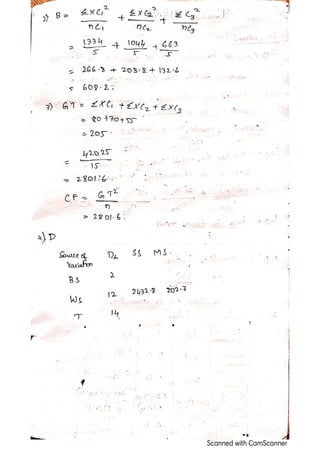 2) B = ΣXC₁² / nC₁ + ΣXC₂² / nC₂ + ΣC₃² / nC₃
= 1334/5 + 1044/5 + 663/5
= 266.8 + 208.8 + 132.6
= 608.2.
3) GT = ΣXC₁ + ΣXC₂ + ΣXC₃
= 80 + 70 + 55
= 205.
= 42025/15
= 2801.6.
CF = GT²/n
= 2801.6.
4) D
Source of Variation Df SS MS
BS 2
WS 12 2432.8 202.7
T 14
Scanned with CamScanner